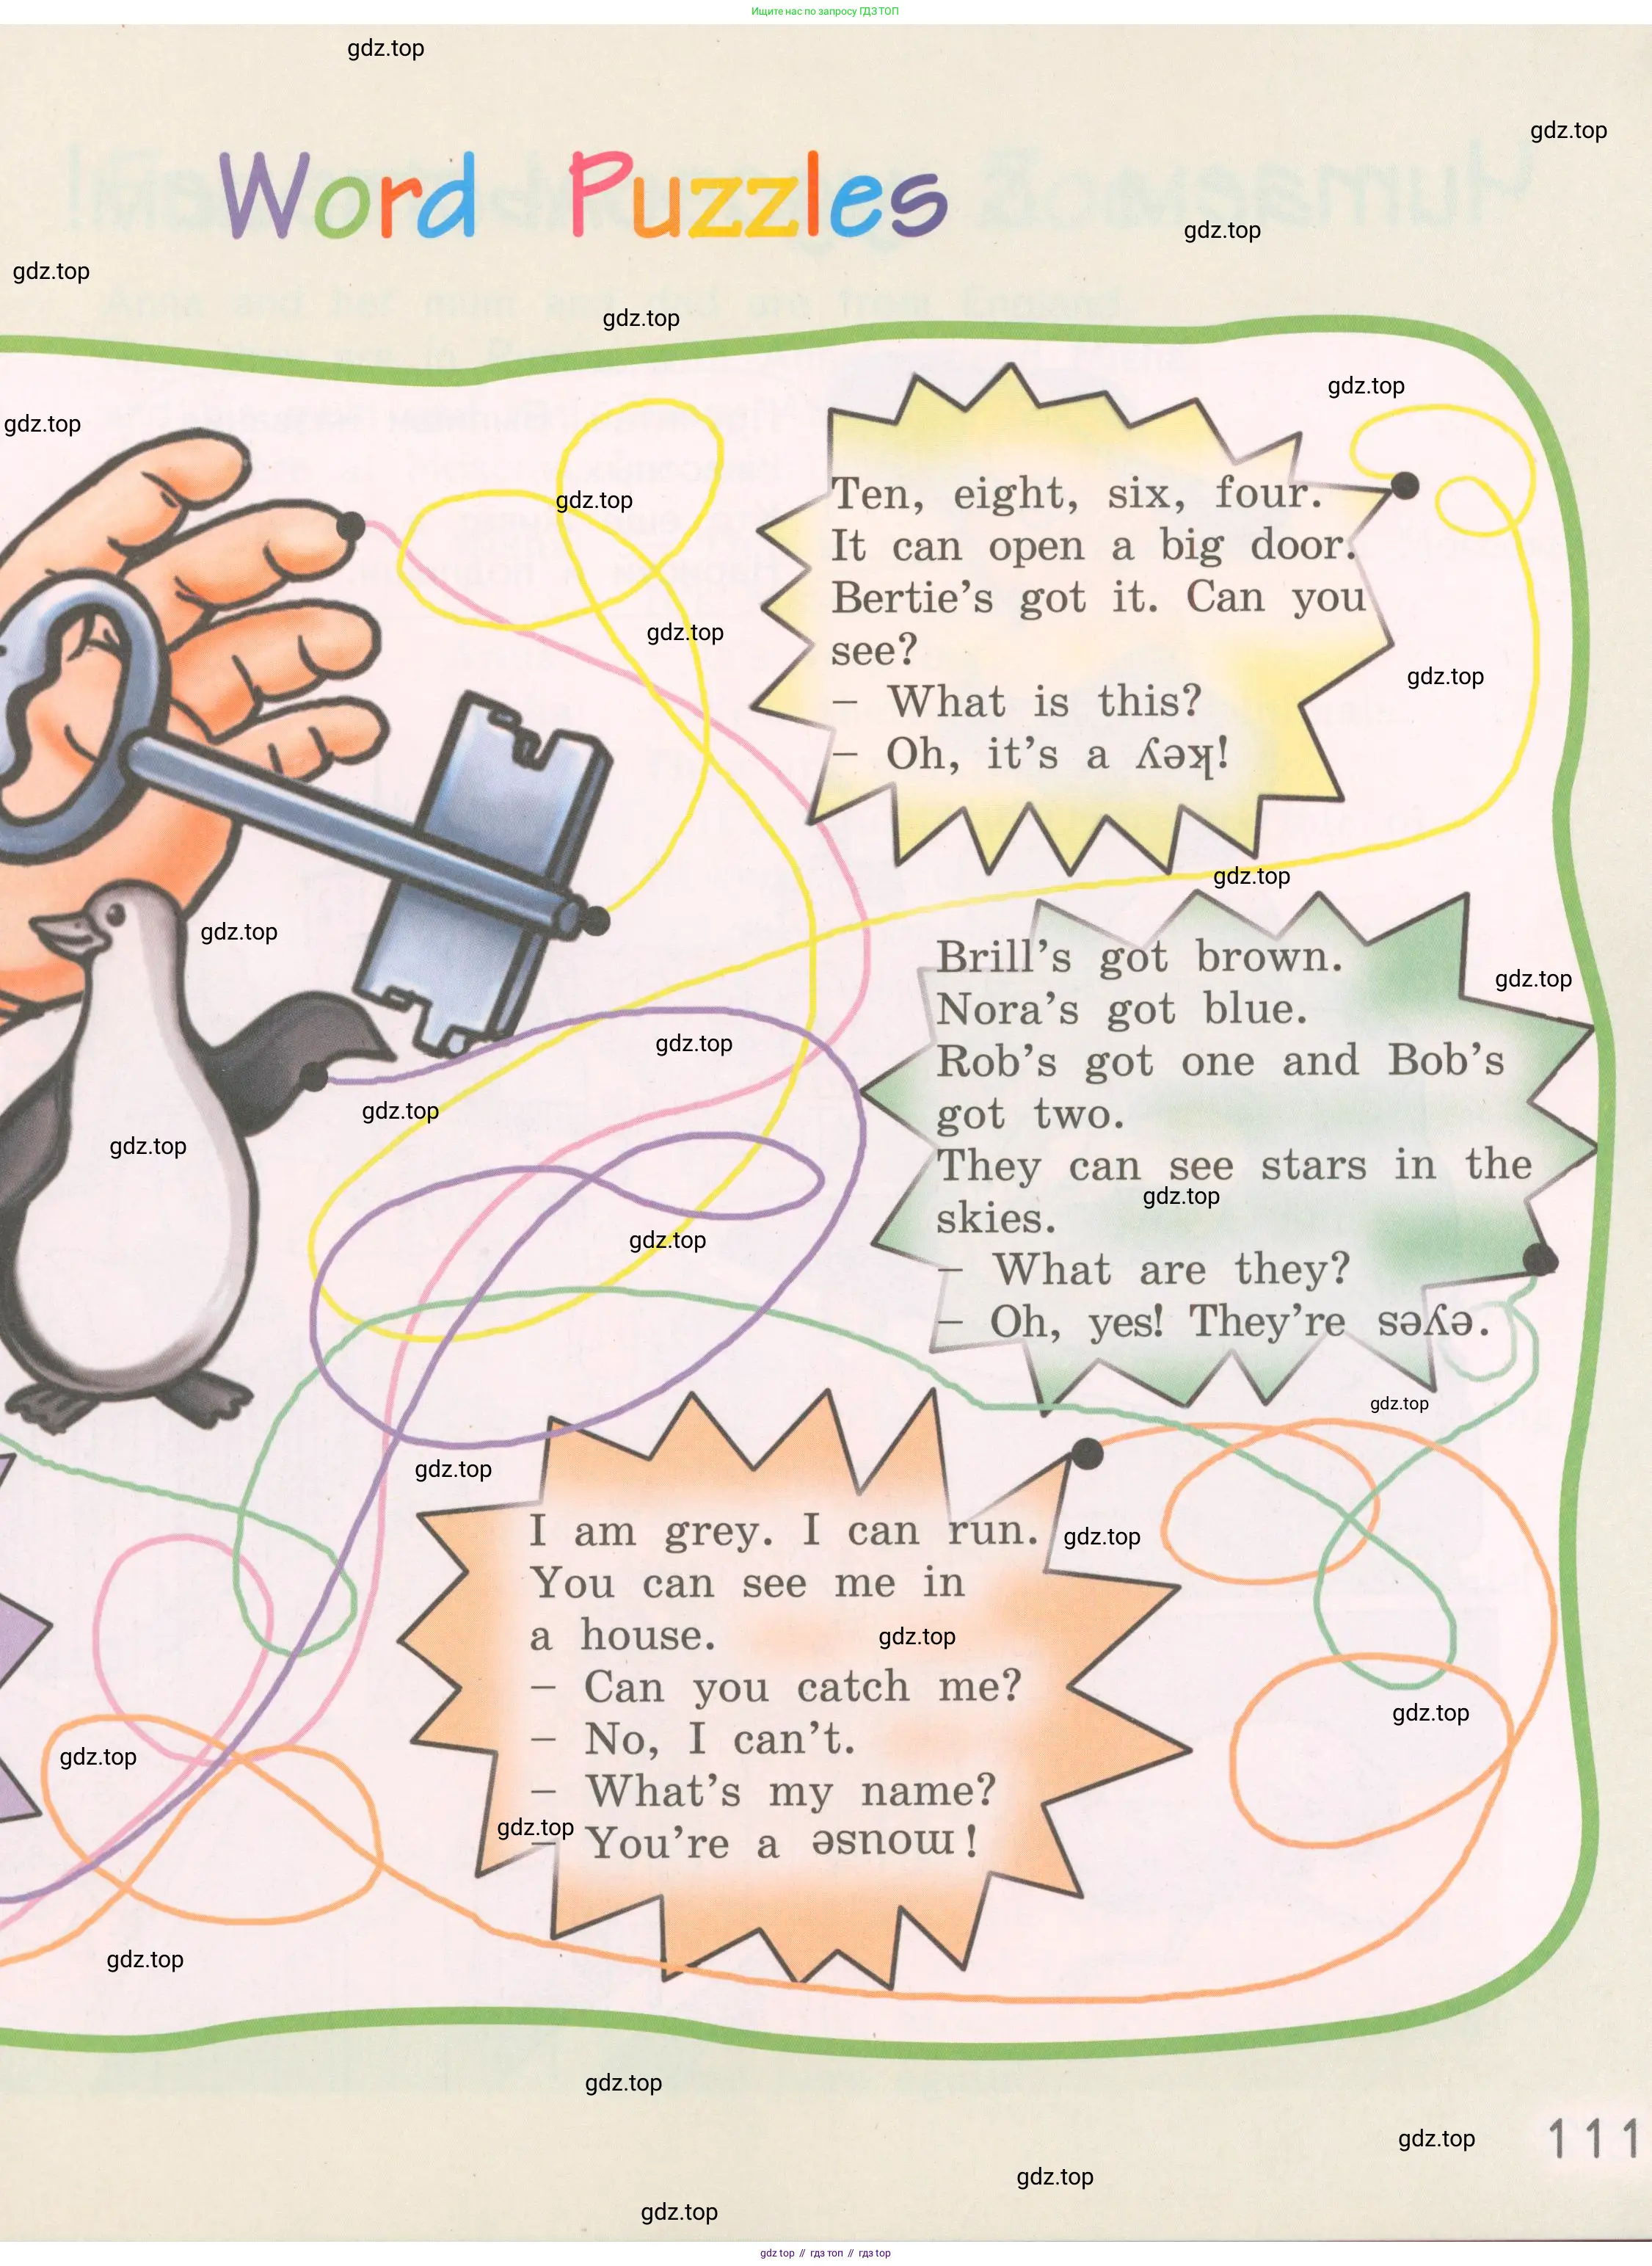 Ищите нас по запросу ГДЗ ТОП
gdz.top
gdz.top
Word Puzzles
gdz.top
gdz.top
gdz.top
gdz.top
gdz.top
gdz.top
Ten, eight, six, four.
It can open a big door.
Bertie's got it. Can you
see?
– What is this?
– Oh, it's a key!
gdz.top
gdz.top
gdz.top
gdz.top
Brill's got brown.
Nora's got blue.
Rob's got one and Bob's
got two.
They can see stars in the
skies.
– What are they?
– Oh, yes! They're eyes.
gdz.top
gdz.top
gdz.top
gdz.top
gdz.top
gdz.top
gdz.top
gdz.top
I am grey. I can run.
You can see me in
a house.
– Can you catch me?
– No, I can't.
– What's my name?
– You're a mouse!
gdz.top
gdz.top
gdz.top
gdz.top
gdz.top
gdz.top
gdz.top
gdz.top
111
gdz.top
gdz.top
gdz top // гдз топ // гдз top